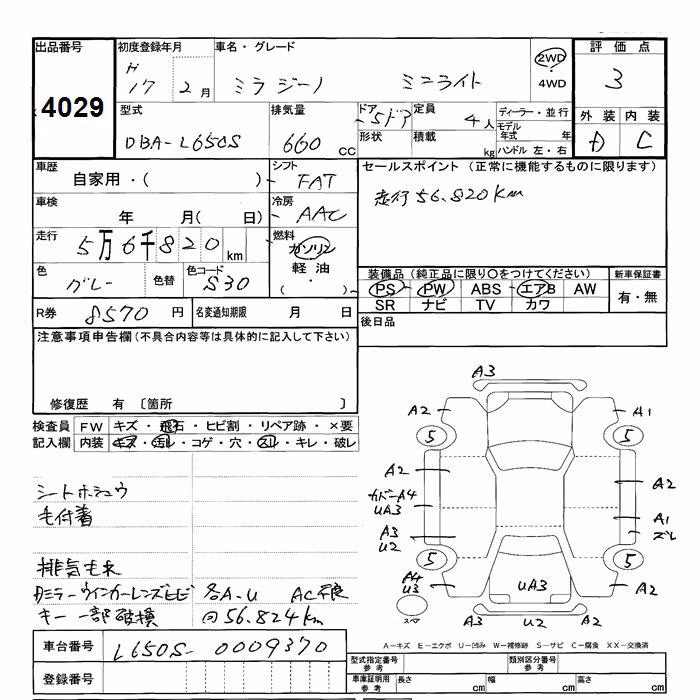 出品番号 初度登録年月 車名・グレード 評価点
4029 H 17 2月 ミラジーノ ミニライト 2WD ・ 4WD 3
型式 排気量 ドア 定員 ディーラー・並行 外装 内装
DBA-L650S 660 cc 5ドア 4人 モデル年式 年 D C
形状 積載 kg ハンドル 左・右
車歴 シフト セールスポイント (正常に機能するものに限ります)
自家用・( ) FAT 走行56.820Km
車検 冷房
年 月( 日) AAC
走行 燃料
5万6千820km ガソリン
軽油
( ・ )
色 色替 色コード
グレー S30
装備品(純正品に限り○をつけてください) 新車保証書
PS PW ABS エアB AW 有・無
SR ナビ TV カワ
R券 8570 円 名変通知期限 月 日 後日品
注意事項申告欄(不具合内容等は具体的に記入して下さい)
修復歴 有 〔箇所 〕
検査員 FW キズ・飛石・ヒビ割・リペア跡・×要
記入欄 内装 キズ・汚れ・コゲ・穴・スレ・キレ・破レ
シートホシュウ
毛付着
排気もれ
ミラーウインカーレンズヒビ 各A-U AC不良
キー一部破損 56.824km
A3
A2 A1
5 5
A2 A2
カバーA4
UA3 A1
ズレ
A3
U2
5 5
A4
U3 UA3 A2
スペア A3 U2 A2
A-キズ E-エクボ U-凹み W-補修跡 S-サビ C-腐食 XX-交換済
車台番号 L650S-0009370
登録番号
型式指定番号 参考 類別区分番号 参考
車庫証明用 参考 長さ cm 幅 cm 高さ cm